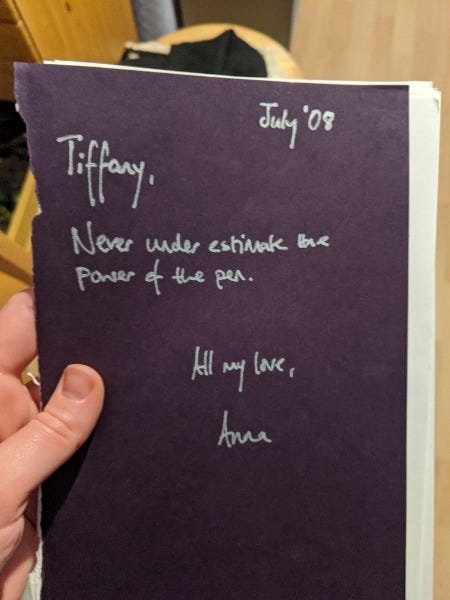 July '08
Tiffany,
Never under estimate the
power of the pen.
All my love,
Anna